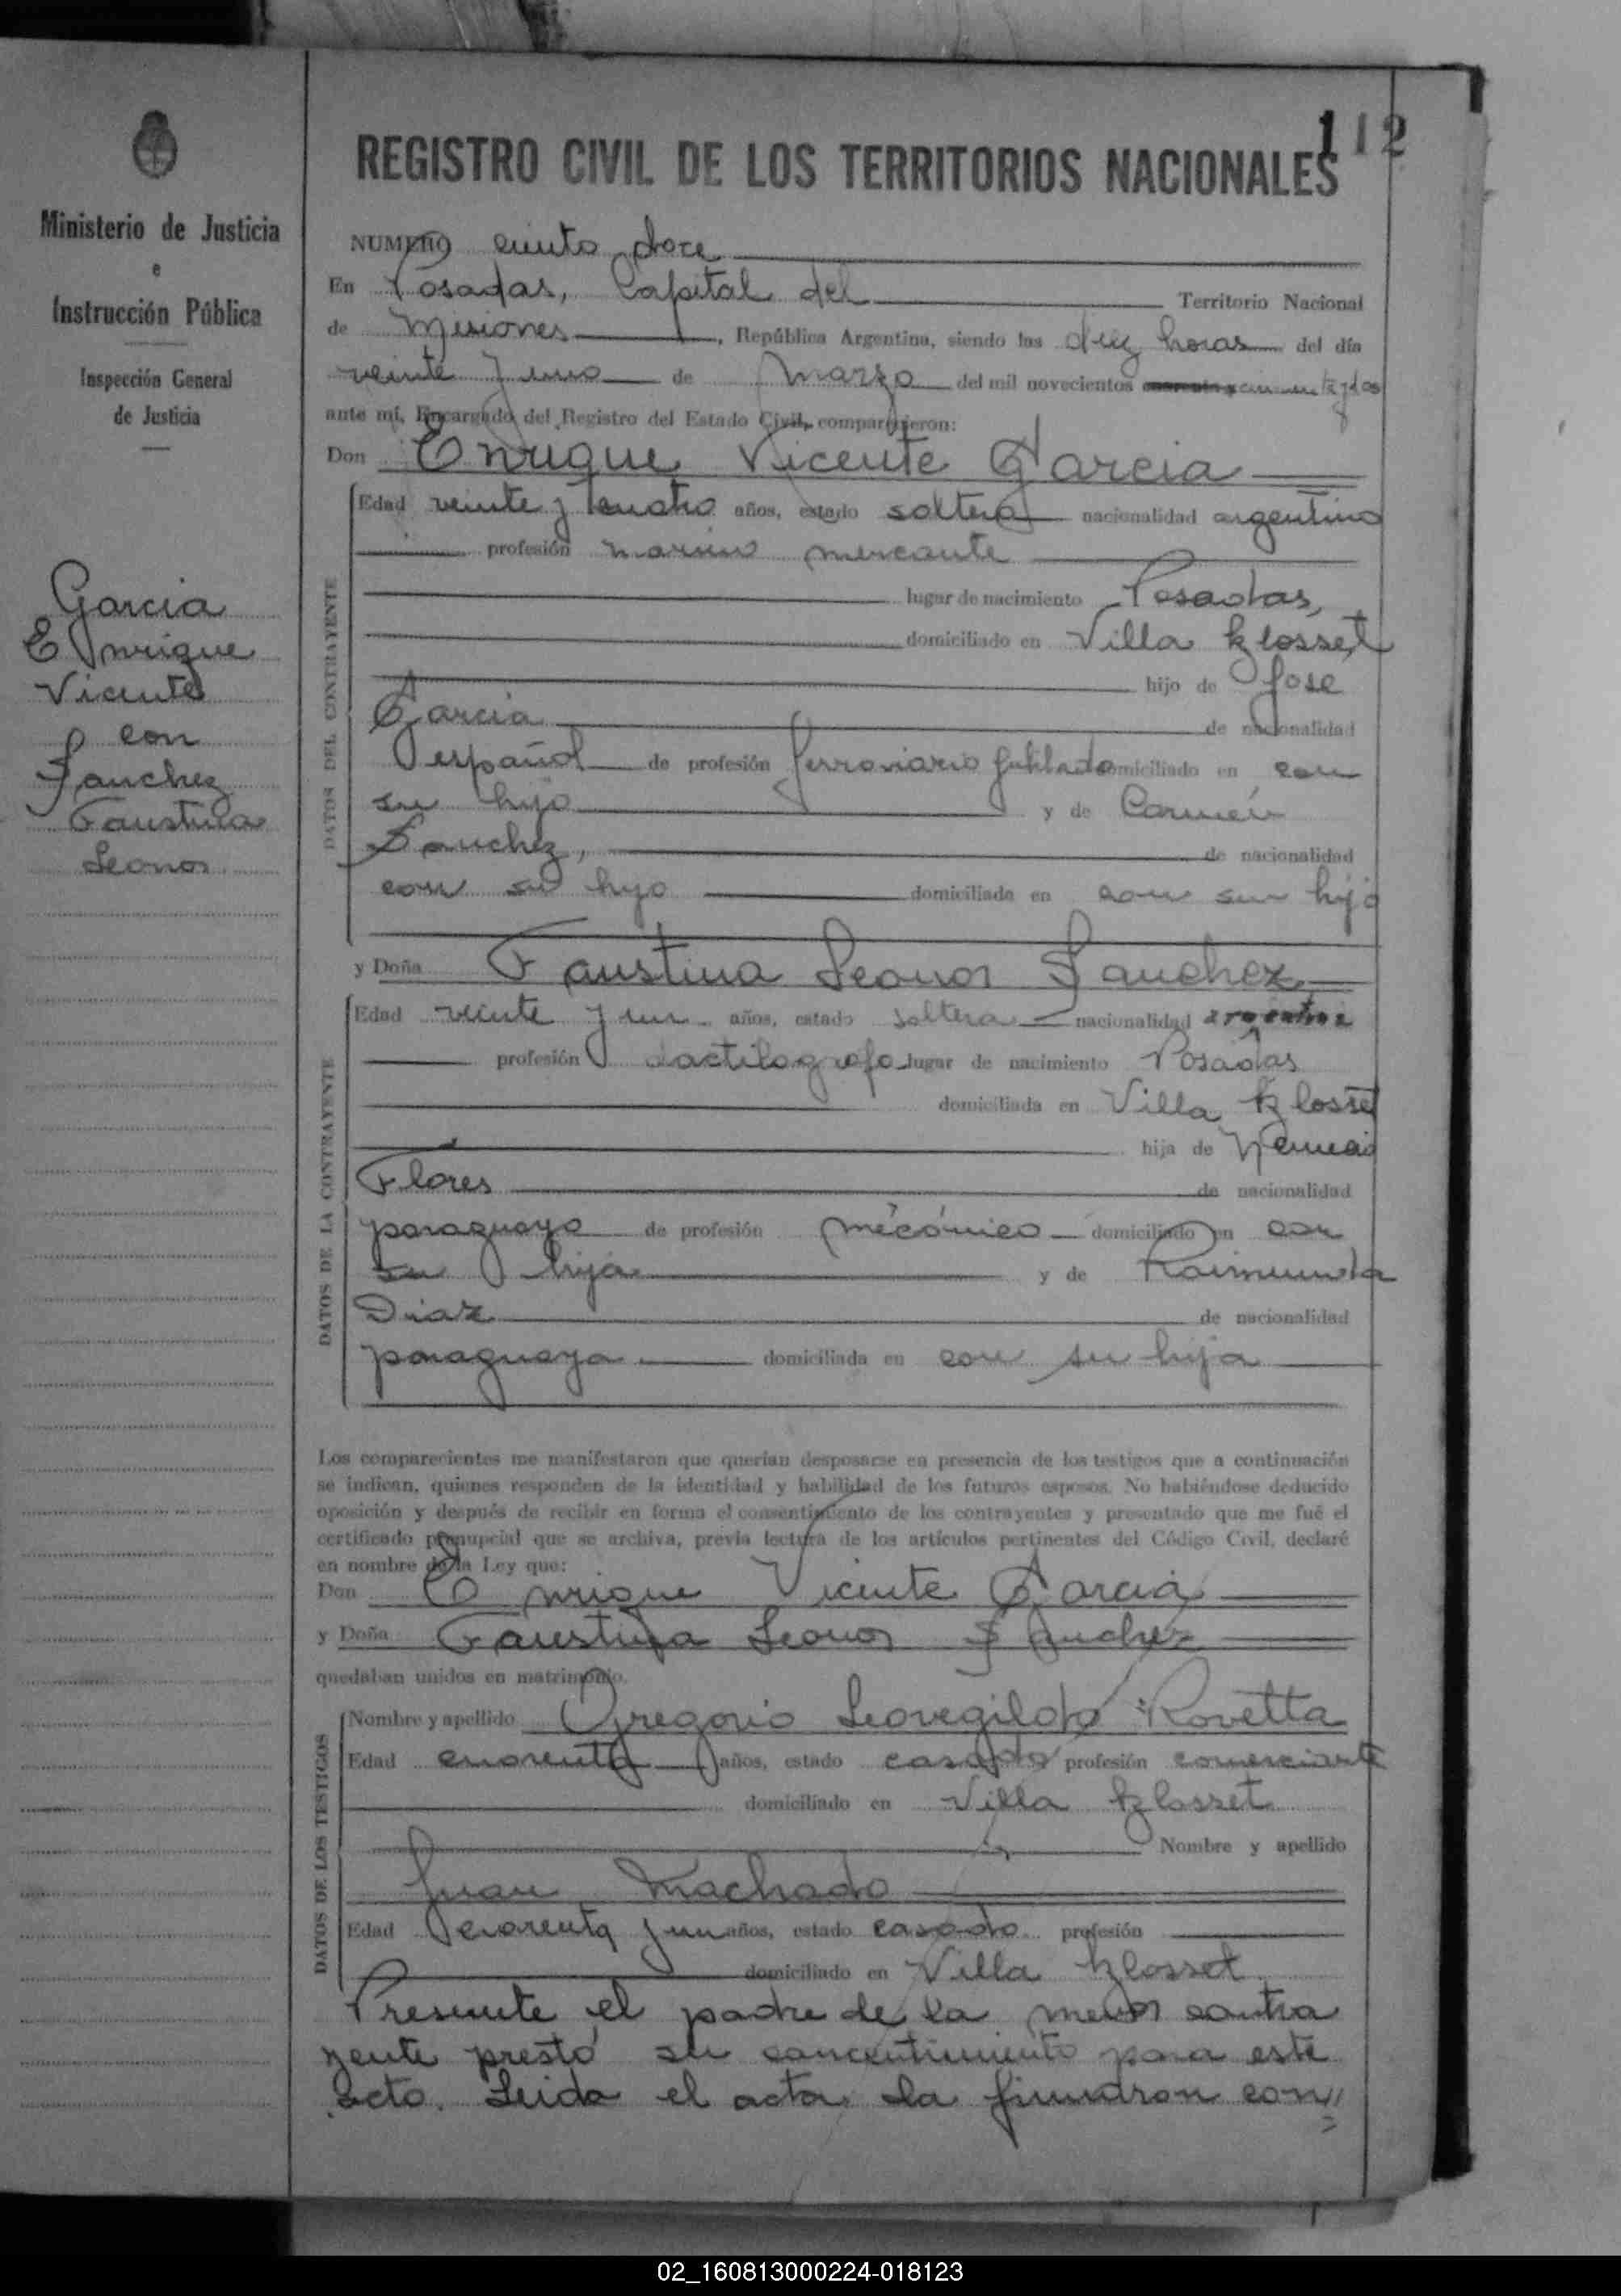 112
REGISTRO CIVIL DE LOS TERRITORIOS NACIONALES
Ministerio de Justicia
e
Instrucción Pública
Inspección General
de Justicia
Garcia
Enrique
Vicente
con
Sanchez
Faustina
Leonor
NUMERO ciento doce
En Posadas, Capital del Territorio Nacional
de Misiones, República Argentina, siendo las diez horas del día
veinte y uno de Marzo del mil novecientos cincuenta y dos
ante mí, Encargado del Registro del Estado Civil, comparecieron:
Don Enrique Vicente Garcia
DATOS DEL CONTRAYENTE
Edad veinte y cuatro años, estado soltero nacionalidad argentino
profesión marino mercante
lugar de nacimiento Posadas,
domiciliado en Villa Klosset
hijo de Jose
Garcia de nacionalidad
español de profesión ferroviario jubilado domiciliado en con
su hijo y de Carmen
Sanchez, de nacionalidad
con su hijo domiciliada en con su hijo
y Doña Faustina Leonor Sanchez
DATOS DE LA CONTRAYENTE
Edad veinte y un años, estado soltera nacionalidad argentina
profesión dactilografa lugar de nacimiento Posadas
domiciliada en Villa Klosset
hija de
Flores de nacionalidad
paraguayo de profesión mecánico domiciliado en con
su hija y de Raimunda
Diaz de nacionalidad
paraguaya domiciliada en con su hija
Los comparecientes me manifestaron que querían desposarse en presencia de los testigos que a continuación
se indican, quienes responden de la identidad y habilidad de los futuros esposos. No habiéndose deducido
oposición y después de recibir en forma el consentimiento de los contrayentes y presentado que me fué el
certificado prenupcial que se archiva, previa lectura de los artículos pertinentes del Código Civil, declaré
en nombre de la Ley que:
Don Enrique Vicente Garcia
y Doña Faustina Leonor Sanchez
quedaban unidos en matrimonio.
DATOS DE LOS TESTIGOS
Nombre y apellido Gregorio Leovegildo Rovetta
Edad cuarenta años, estado casado profesión comerciante
domiciliado en Villa Klosset
Nombre y apellido
Juan Machado
Edad cuarenta y un años, estado casado profesión
domiciliado en Villa Klosset
Presente el padre de la menor contra
yente prestó su concentimiento para este
acto. Leida el acta la firmaron con
02_160813000224-018123